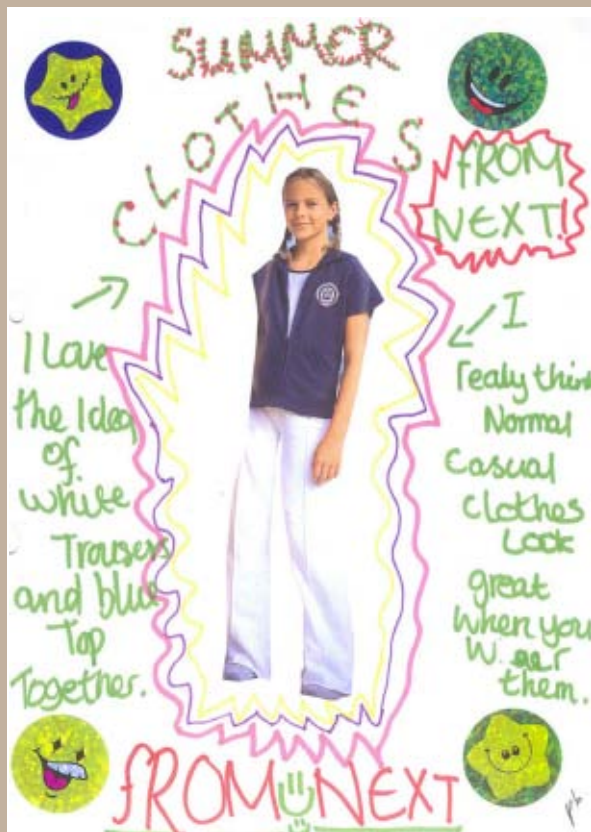 SUMMER
CLOTHES
FROM
NEXT!
I Love
the Idea
of
white
Trousers
and blue
Top
Together.
I
realy think
Normal
Casual
Clothes
Look
great
when you
them.
FROM NEXT